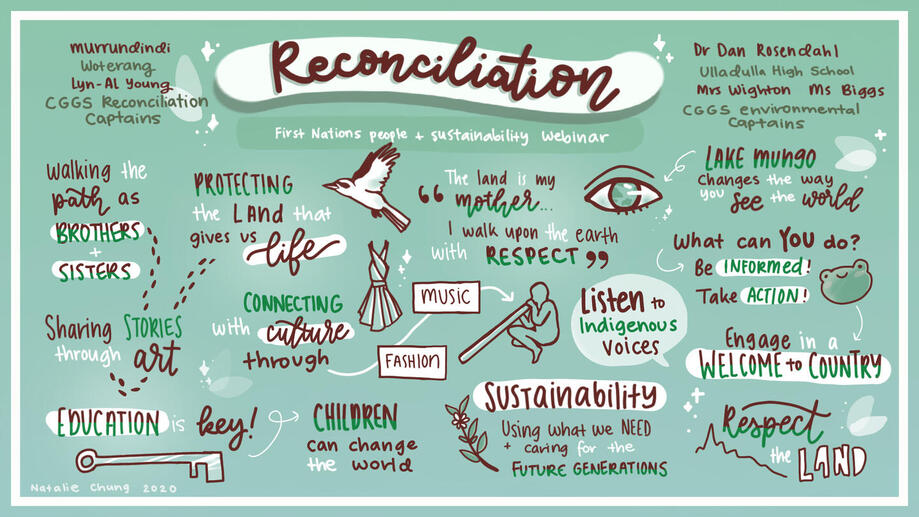 murrundindi
Woterang
Lyn-Al Young
CGGS Reconciliation
Captains
Reconciliation
First Nations people + sustainability webinar
Dr Dan Rosendahl
Ulladulla High School
Mrs Wighton Ms Biggs
CGGS environmental
Captains
Walking the
path as
BROTHERS
+
SISTERS
Sharing STORIES
through art
PROTECTING
the LAND that
gives us
life
CONNECTING
with culture
through
MUSIC
FASHION
“ The land is my
mother...
I walk upon the earth
with RESPECT ”
Listen to
Indigenous
voices
LAKE MUNGO
Changes the way
you see the world
What can YOU do?
Be INFORMED!
Take ACTION!
Engage in a
WELCOME to COUNTRY
EDUCATION is key!
CHILDREN
can change
the world
SUSTAINABILITY
Using what we NEED
+ caring for the
FUTURE GENERATIONS
Respect
the LAND
Natalie Chung 2020